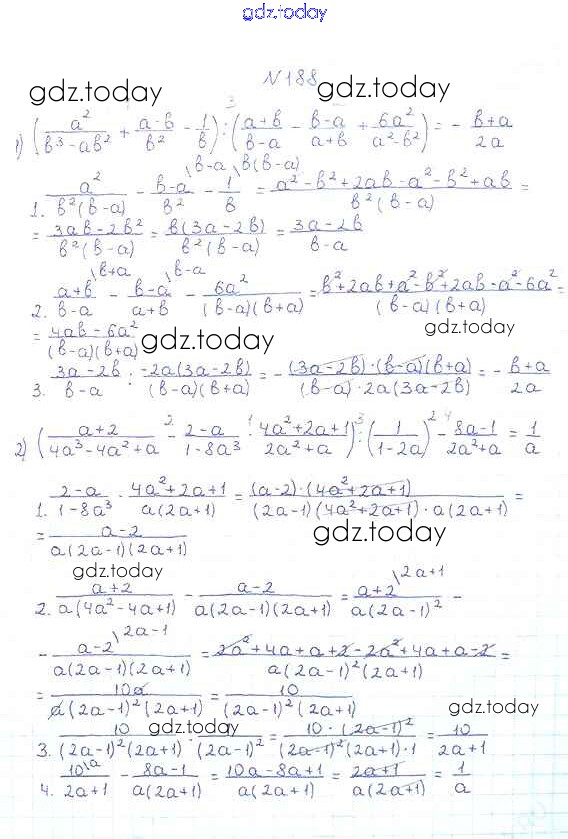 gdz.today
N188
gdz.today gdz.today
1) (a²/(b³-ab²) + (a-b)/b² - 1/b) : ((a+b)/(b-a) - (b-a)/(a+b) + 6a²/(a²-b²)) = - (b+a)/2a
1. a²/(b²(b-a)) - (b-a)/b² \b-a - 1/b \b(b-a) = (a²-b²+2ab-a²-b²+ab)/(b²(b-a)) =
= (3ab-2b²)/(b²(b-a)) = b(3a-2b)/(b²(b-a)) = (3a-2b)/(b-a)
2. (a+b)/(b-a) \b+a - (b-a)/(a+b) \b-a - 6a²/((b-a)(b+a)) = (b²+2ab+a²-b²+2ab-a²-6a²)/((b-a)(b+a)) =
= (4ab-6a²)/((b-a)(b+a)) gdz.today gdz.today
3. (3a-2b)/(b-a) : -2a(3a-2b)/((b-a)(b+a)) = - (3a-2b)·(b-a)(b+a)/((b-a)·2a(3a-2b)) = - (b+a)/2a
gdz.today
2) ((a+2)/(4a³-4a²+a) - (2-a)/(1-8a³) · (4a²+2a+1)/(2a²+a)) : (1/(1-2a))² - (8a-1)/(2a²+a) = 1/a
1. (2-a)/(1-8a³) · (4a²+2a+1)/(a(2a+1)) = (a-2)·(4a²+2a+1)/((2a-1)(4a²+2a+1)·a(2a+1)) =
= (a-2)/(a(2a-1)(2a+1)) gdz.today
gdz.today
2. (a+2)/(a(4a²-4a+1)) - (a-2)/(a(2a-1)(2a+1)) = (a+2)/(a(2a-1)²) \2a+1 -
- (a-2)/(a(2a-1)(2a+1)) \2a-1 = (2a²+4a+a+2-2a²+4a+a-2)/(a(2a-1)²(2a+1)) =
= 10a/(a(2a-1)²(2a+1)) = 10/((2a-1)²(2a+1)) gdz.today
gdz.today
3. 10/((2a-1)²(2a+1)) · (2a-1)² = 10·(2a-1)²/((2a-1)²(2a+1)·1) = 10/(2a+1)
4. 10/(2a+1) \a - (8a-1)/(a(2a+1)) = (10a-8a+1)/(a(2a+1)) = (2a+1)/(a(2a+1)) = 1/a
gdz.today